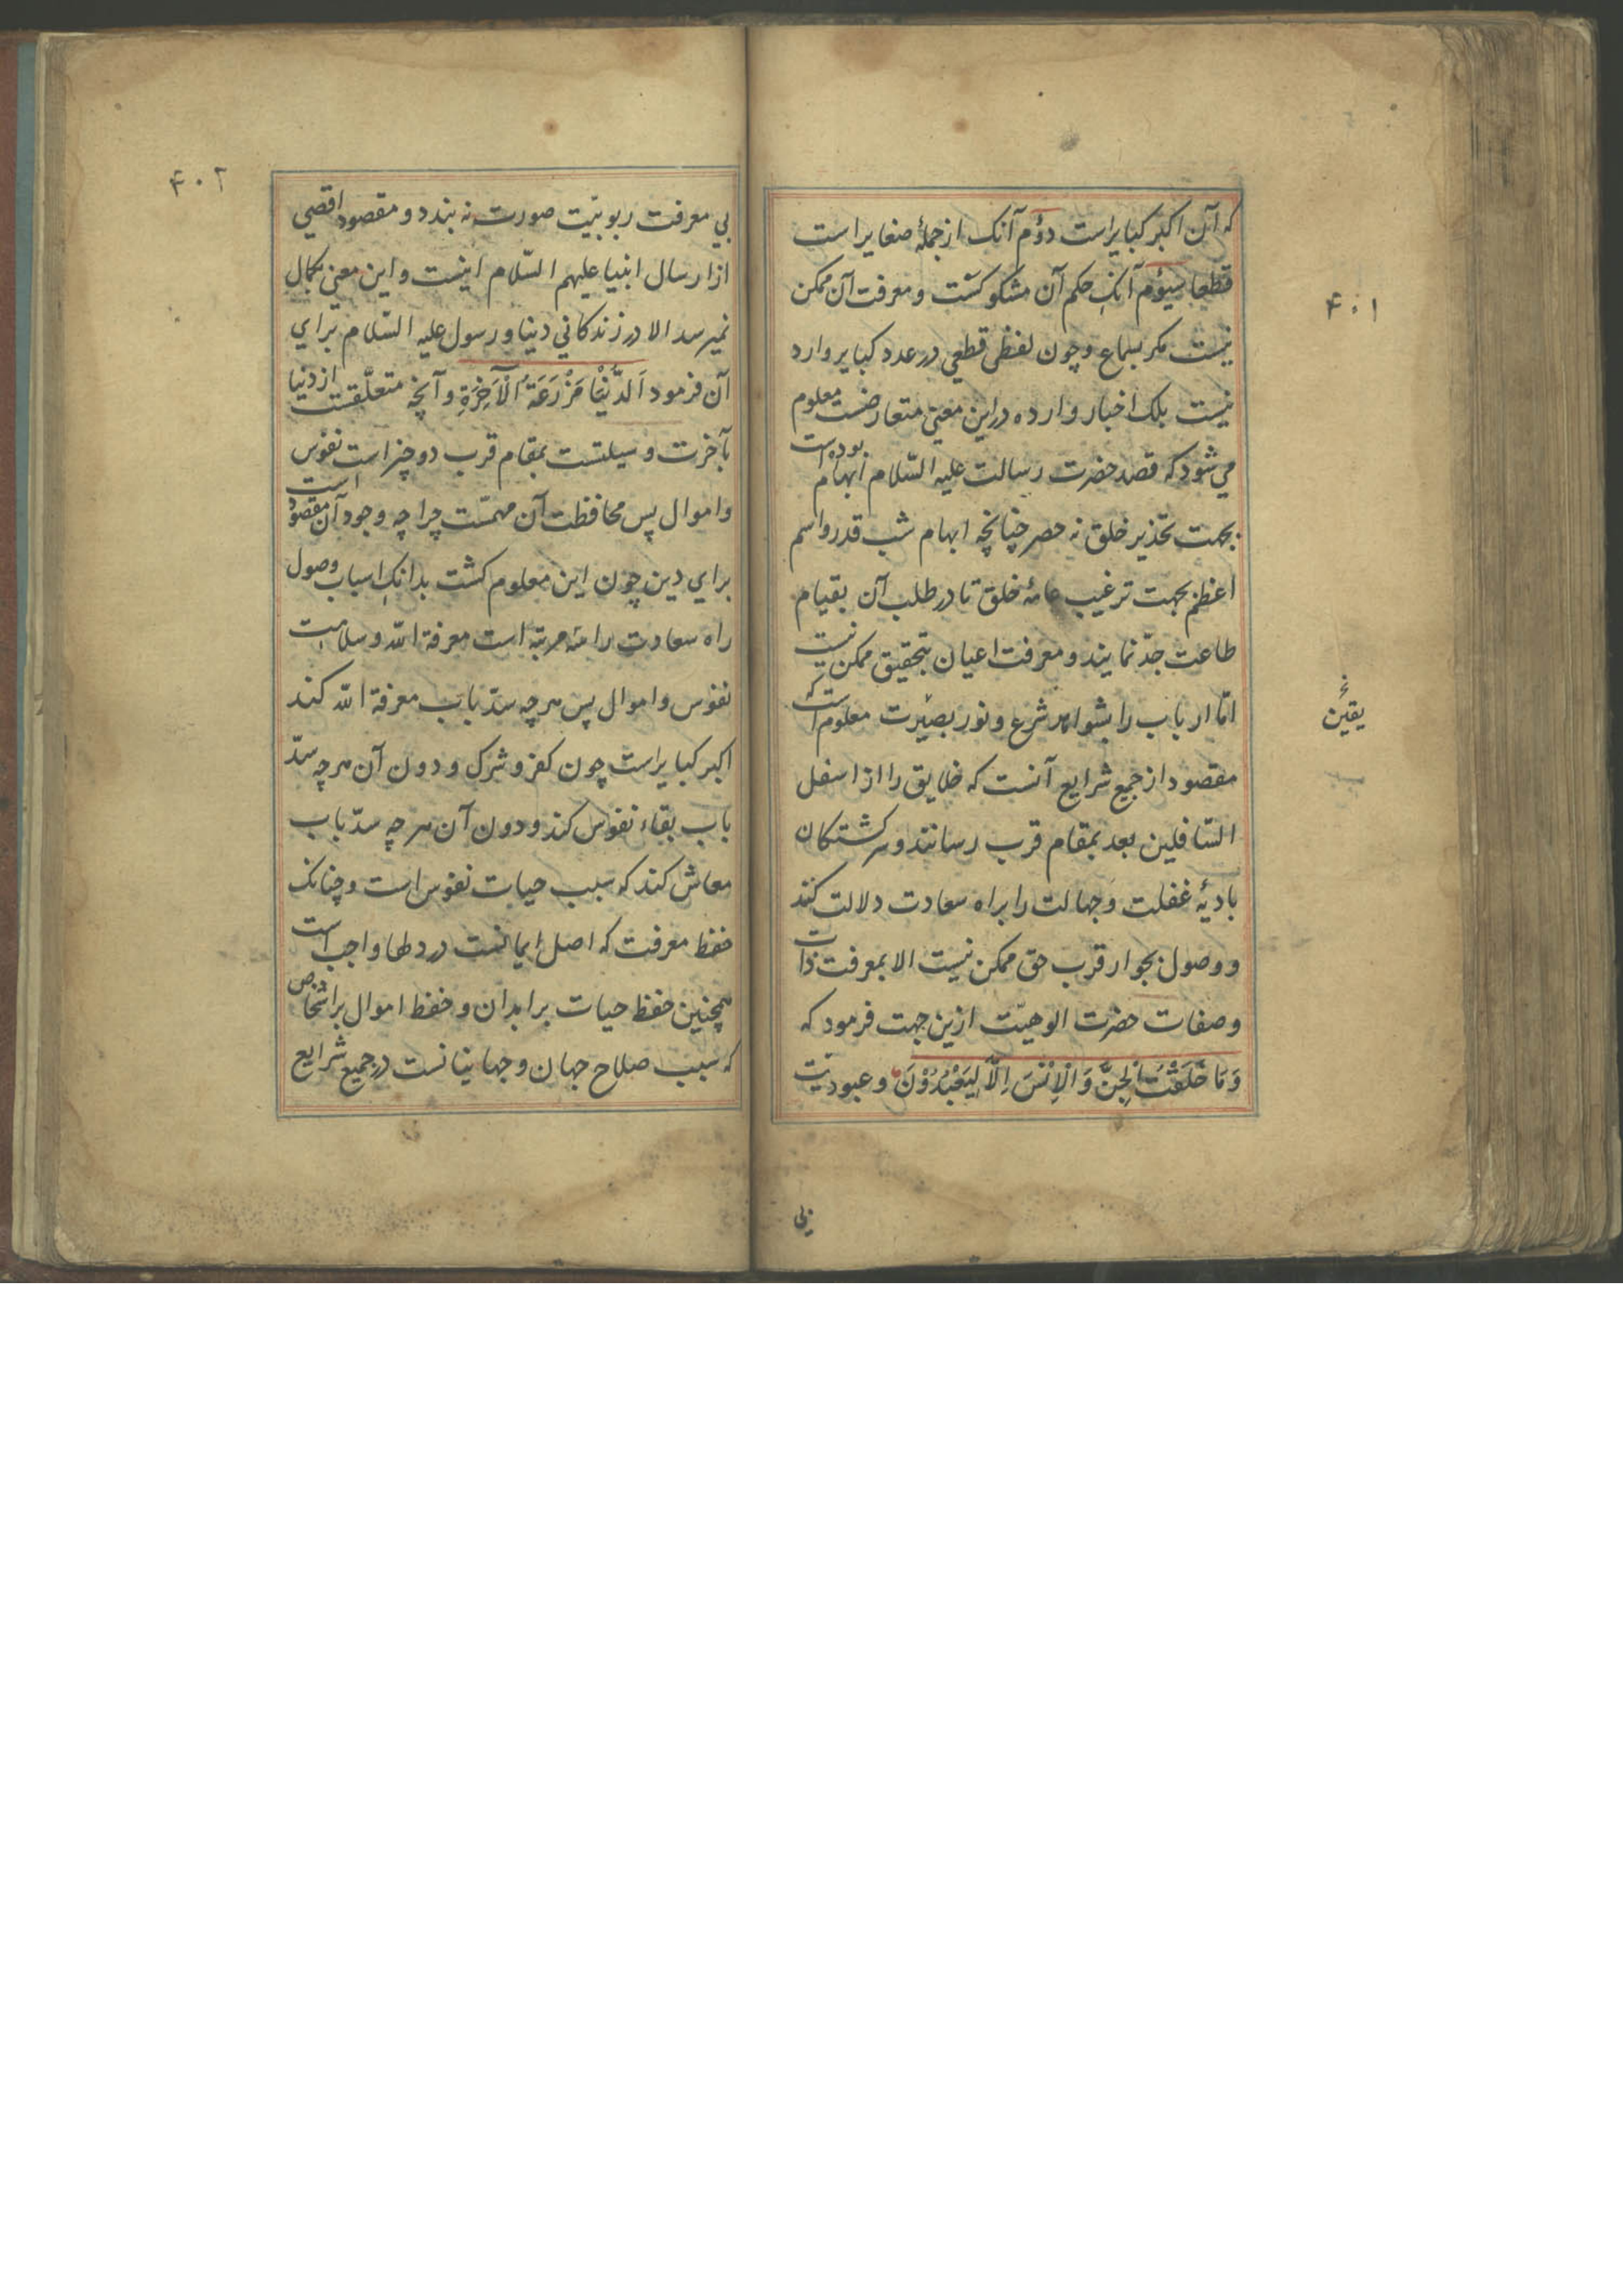 ۴۰۱
که آن اکبر کبایر است دوم آنک از جملهٔ صغایر است
قطعا سیوم آنک حکم آن مشکوکست و معرفت آن ممکن
نیست مکر بسماع و چون لفظی قطعی در عدد کبایر وارد
نیست بلک اخبار وارده دراین معنی متعارضست معلوم
می شود که قصد حضرت رسالت علیه السّلام ابهام بوده است
بجهت تحذیر خلق نه حصر چنانچه ابهام شب قدر و اسم
اعظم بجهت ترغیب عامهٔ خلق تا در طلب آن بقیام
طاعت جدّ نمایند و معرفت اعیان بتحقیق ممکن نیست
امّا ارباب را بشواهد شرع و نور بصیرت معلوم است که
یقین
مقصود از جمیع شرایع آنست که خلایق را از اسفل
السّافلین بعد بمقام قرب رسانند و سرکشتکان
بادیهٔ غفلت و جهالت را براه سعادت دلالت کنند
و وصول بجوار قرب حق ممکن نیست الا بمعرفت ذات
و صفات حضرت الوهیّت ازین جهت فرمود که
وَمَا خَلَقْتُ الْجِنَّ وَ الْاِنْسَ اِلَّا لِیَعْبُدُوْنَ و عبودیّت
بی
۴۰۲
بی معرفت ربوبیّت صورت نه بندد و مقصود اقصی
از ارسال انبیا علیهم السّلام اینست و این معنی بکمال
نمیرسد الا در زندکانی دنیا و رسول علیه السّلام برای
آن فرمود اَلدُّنْیَا مَزْرَعَةُ الْآخِرَةِ و آنچه متعلّقست از دنیا
بآخرت و سیلتست بمقام قرب دو چیز است نفوس
و اموال پس محافظت آن مهمّست چرا چه وجود آن مقصود است
برای دین چون این معلوم کشت بدانک اسباب وصول
راه سعادت را سه مرتبه است معرفة الله و سلامت
نفوس و اموال پس هرچه سدّ باب معرفة الله کند
اکبر کبایر است چون کفر و شرک و دون آن هرچه سدّ
باب بقاء نفوس کند و دون آن هرچه سدّ باب
معاش کند که سبب حیات نفوس است و چنانک
حفظ معرفت که اصل ایمانست در دلها واجب است
همچنین حفظ حیات بر ابدان و حفظ اموال بر اشخاص
که سبب صلاح جهان و جهانیانست در جمیع شرایع